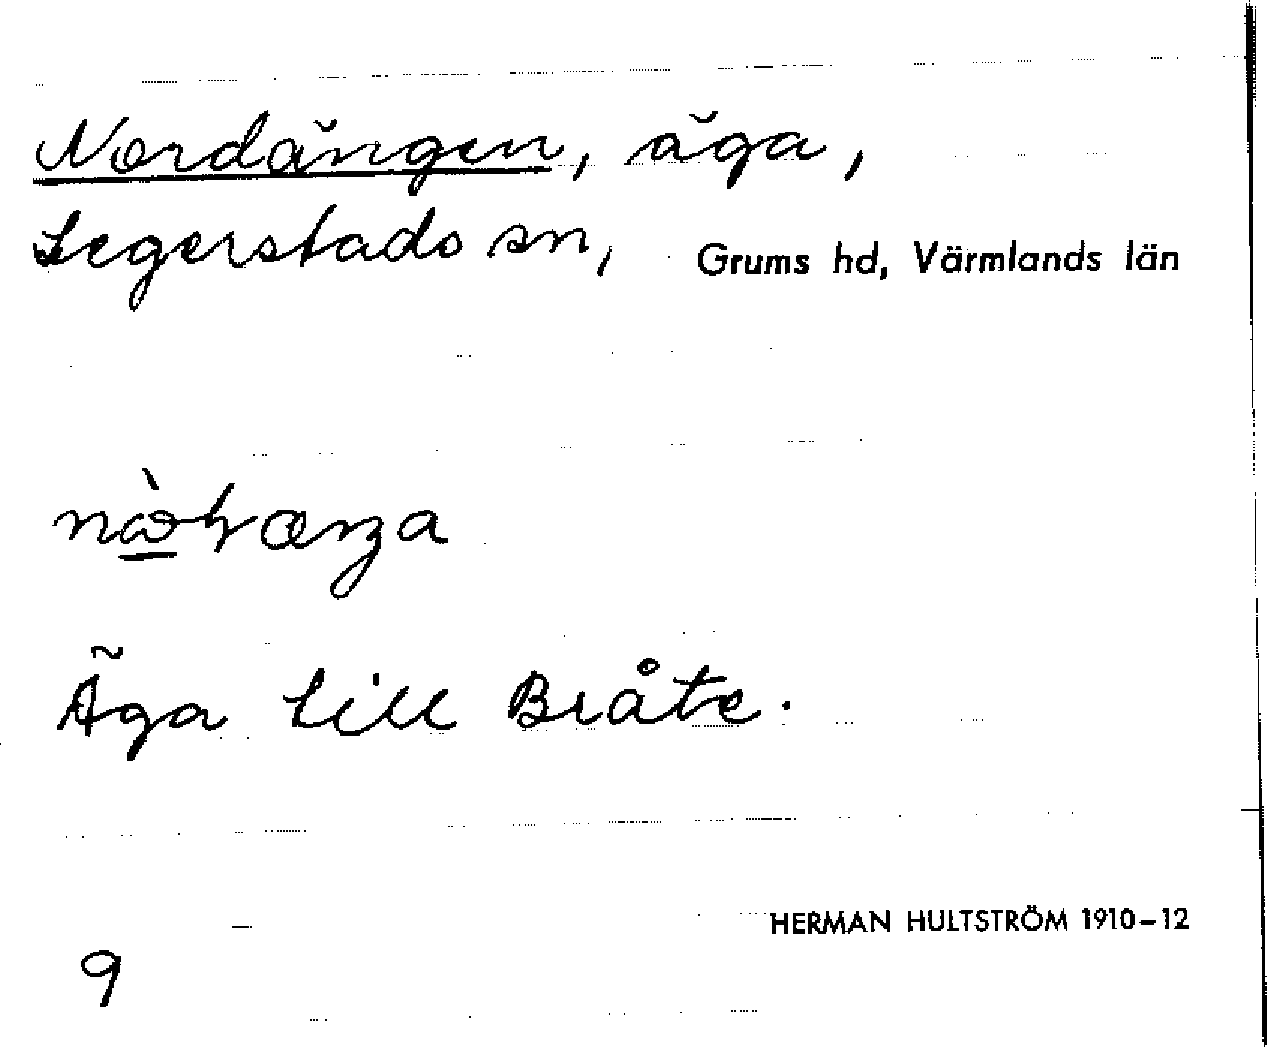 Nordängen, äga,
Segerstads sn, Grums hd, Värmlands län
Äga till Bråte.
HERMAN HULTSTRÖM 1910–12
9